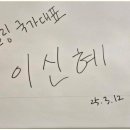 링 국가대표
이신혜
25.3.12